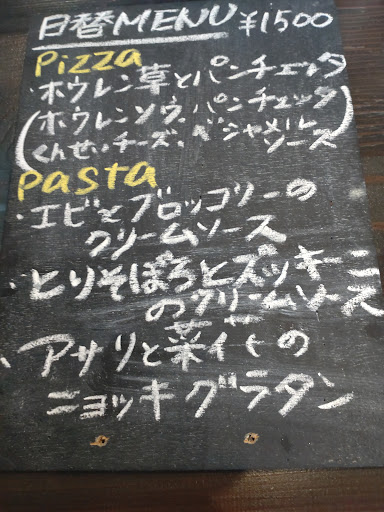 日替MENU ¥1500
Pizza
・ホウレン草とパンチェッタ
(ホウレンソウ、パンチェッタ
くんせいチーズ、ベシャメルソース)
Pasta
・エビとブロッコリーの
クリームソース
・とりそぼろとズッキーニ
のクリームソース
・アサリと菜の花の
ニョッキグラタン